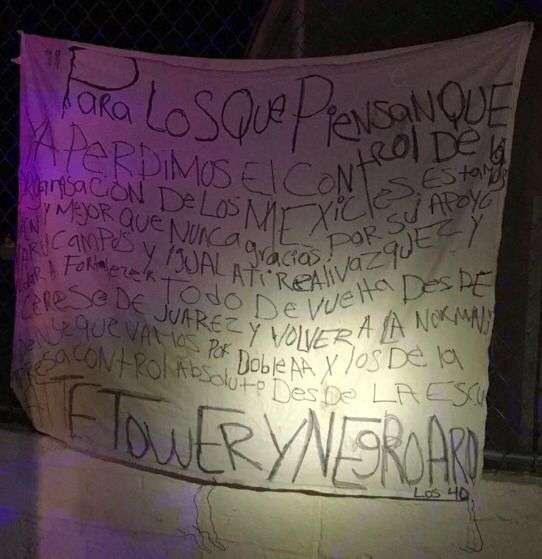 "PARA LOS QUe PiENSAN QUE
YA PERDIMOS El CONTROl DE lA
DE LOS MEXiClES. ESTAMOS
Y MEJOR QUE NUNCA gracias POR SU APOYO
CAMPOS Y iGUAL A Ti REALi VAZQUEZ Y
TODO DE VUELTA DESDE
CERESO DE JUAREZ Y VOLVER A LA
QUE VAMOS POR DOblE AA Y lOS DE la
CONTROl AbSOluTO DESDE LA ESCU
TTE TOWER Y NEGRO ARD
LOS 40